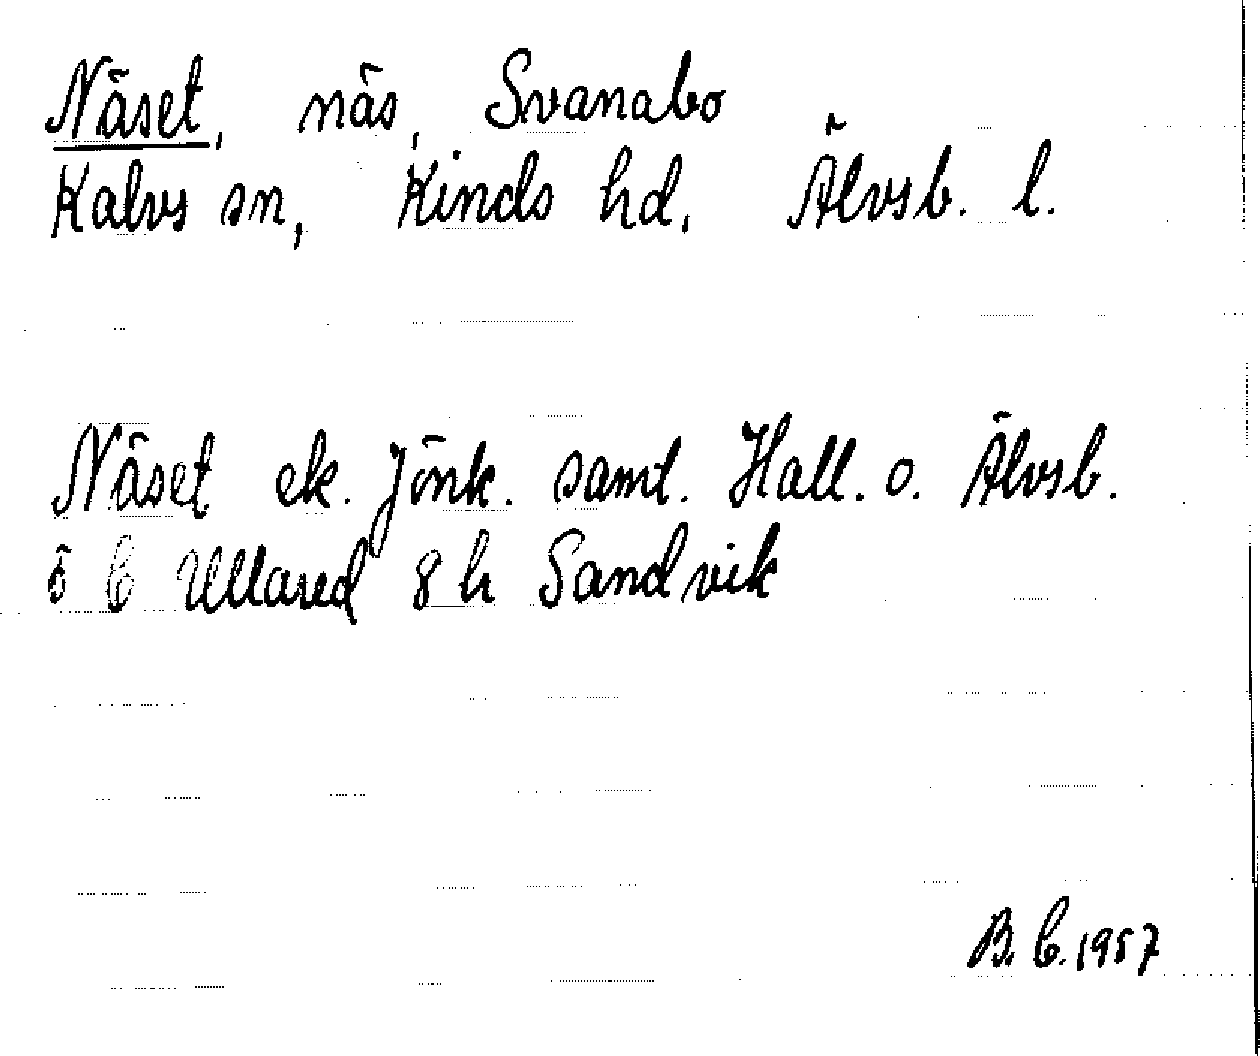 Näset, näs, Svanabo
Kalvs sn, Kinds hd, Älvsb. l.
Näset ek. Jönk. samt. Hall. o. Älvsb.
ö C Ullared 8 h Sandvik
B. C. 1957